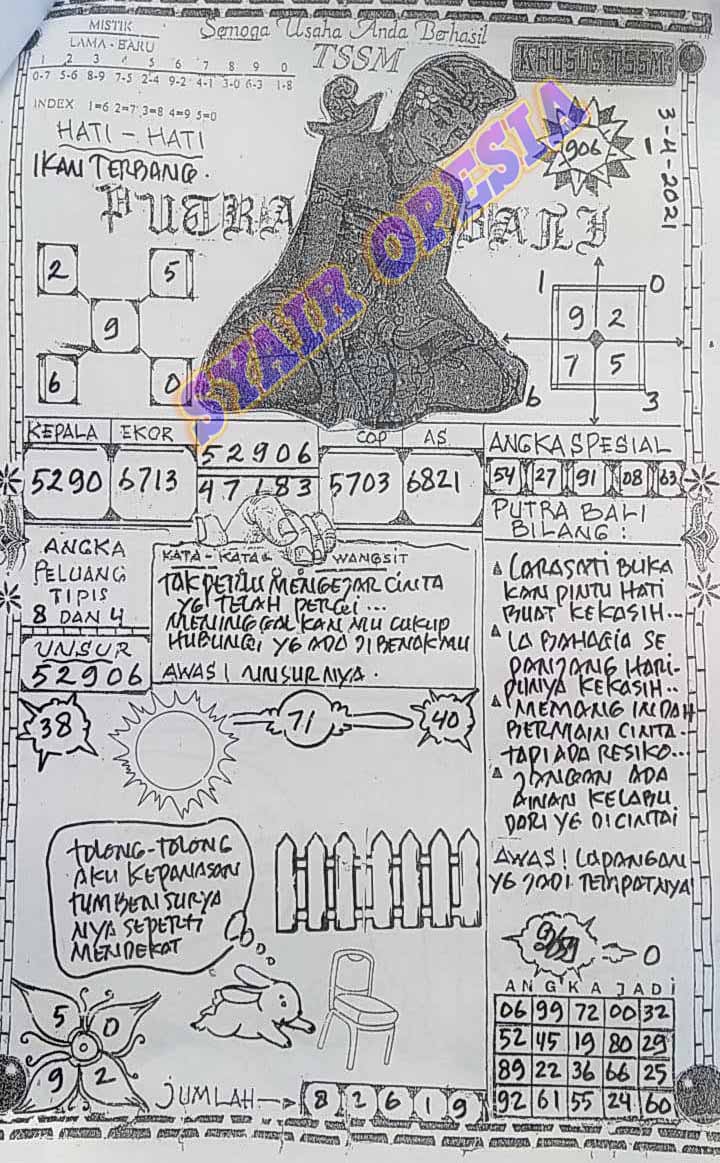 MISTIK
LAMA - BARU
1 2 3 4 5 6 7 8 9 0
0-7 5-6 8-9 7-5 2-4 9-2 4-1 3-0 6-3 1-8
INDEX 1=6 2=7 3=8 4=9 5=0
HATI - HATI
IKAN TERBANG.
Semoga Usaha Anda Berhasil
TSSM
KHUSUS TSSM
906
3-4-2021
PUTRA BALI
SYAIR OPESIA
2 5
9
6 0
1 0
9 2
7 5
6 3
KEPALA EKOR
5290 6713
52906
47183
COP AS
5703 6821
ANGKA SPESIAL
54 27 91 08 63
ANGKA
PELUANG
TIPIS
8 DAN 4
UNSUR
52906
KATA - KATA WANGSIT
TAK PERLU MENGEJAR CINTA
YG TELAH PERGI...
MENINGGALKAN MU CUKUP
HUBUNGI YG ADA DI BENAKMU
AWAS! UNSURNYA.
PUTRA BALI
BILANG:
LARASATI BUKA
KAN PINTU HATI
BUAT KEKASIH...
LA BAHAGIA SE
PANJANG HARI-
PUNYA KEKASIH..
MEMANG INDAH
BERMAIN CINTA
TAPI ADA RESIKO...
JANGAN ADA
AWAN KELABU
DARI YG DICINTAI
AWAS! LAPANGAN
YG JADI TEMPATNYA
38
71
40
TOLONG-TOLONG
AKU KEPANASAN
TUMBEN SURYA
NYA SEPERTI
MENDEKAT
5 0
9 2
JUMLAH
8 2 6 1 9
0
ANGKA JADI
06 99 72 00 32
52 45 19 80 29
89 22 36 66 25
92 61 55 24 60